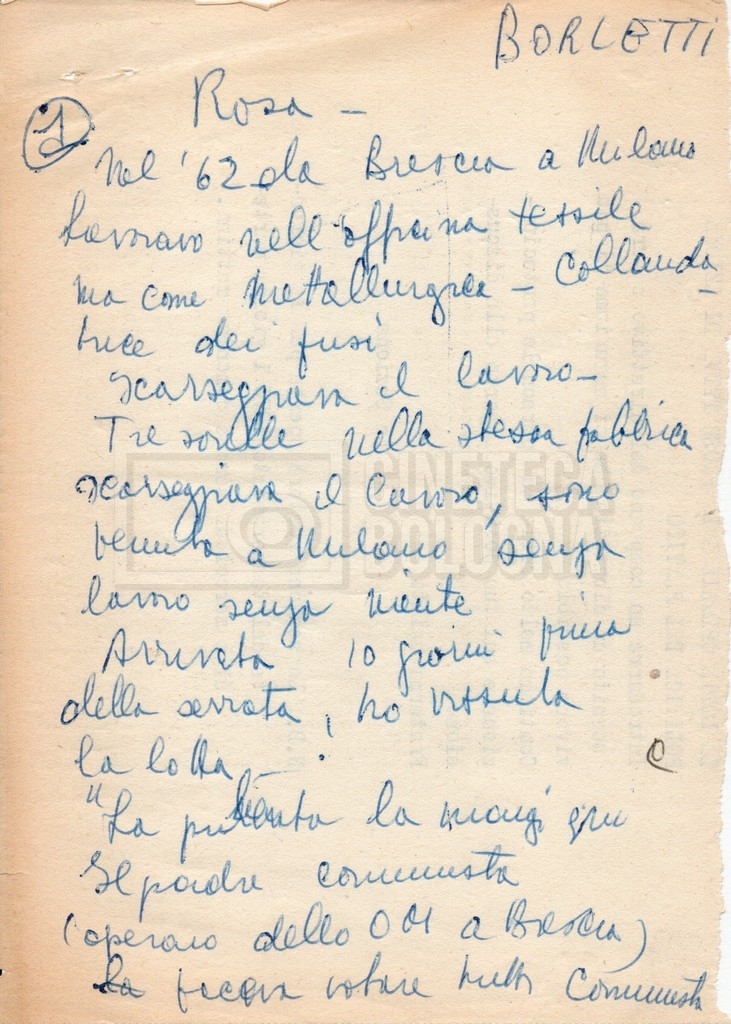 BORLETTI
1
Rosa -
Nel '62 da Brescia a Milano
lavoravo nell'officina tessile
ma come metallurgica - Collauda-
trice dei fusi
scarseggiava il lavoro -
Tre sorelle nella stessa fabbrica
scarseggiava il lavoro, sono
venuta a Milano senza
lavoro senza niente
Arrivata 10 giorni prima
della serrata, ho vissuta
la lotta -
"La la mangi
Il padre comunista
(operaio dello OM a Brescia)
la faceva votare tutti Comunista
CINETECA
BOLOGNA